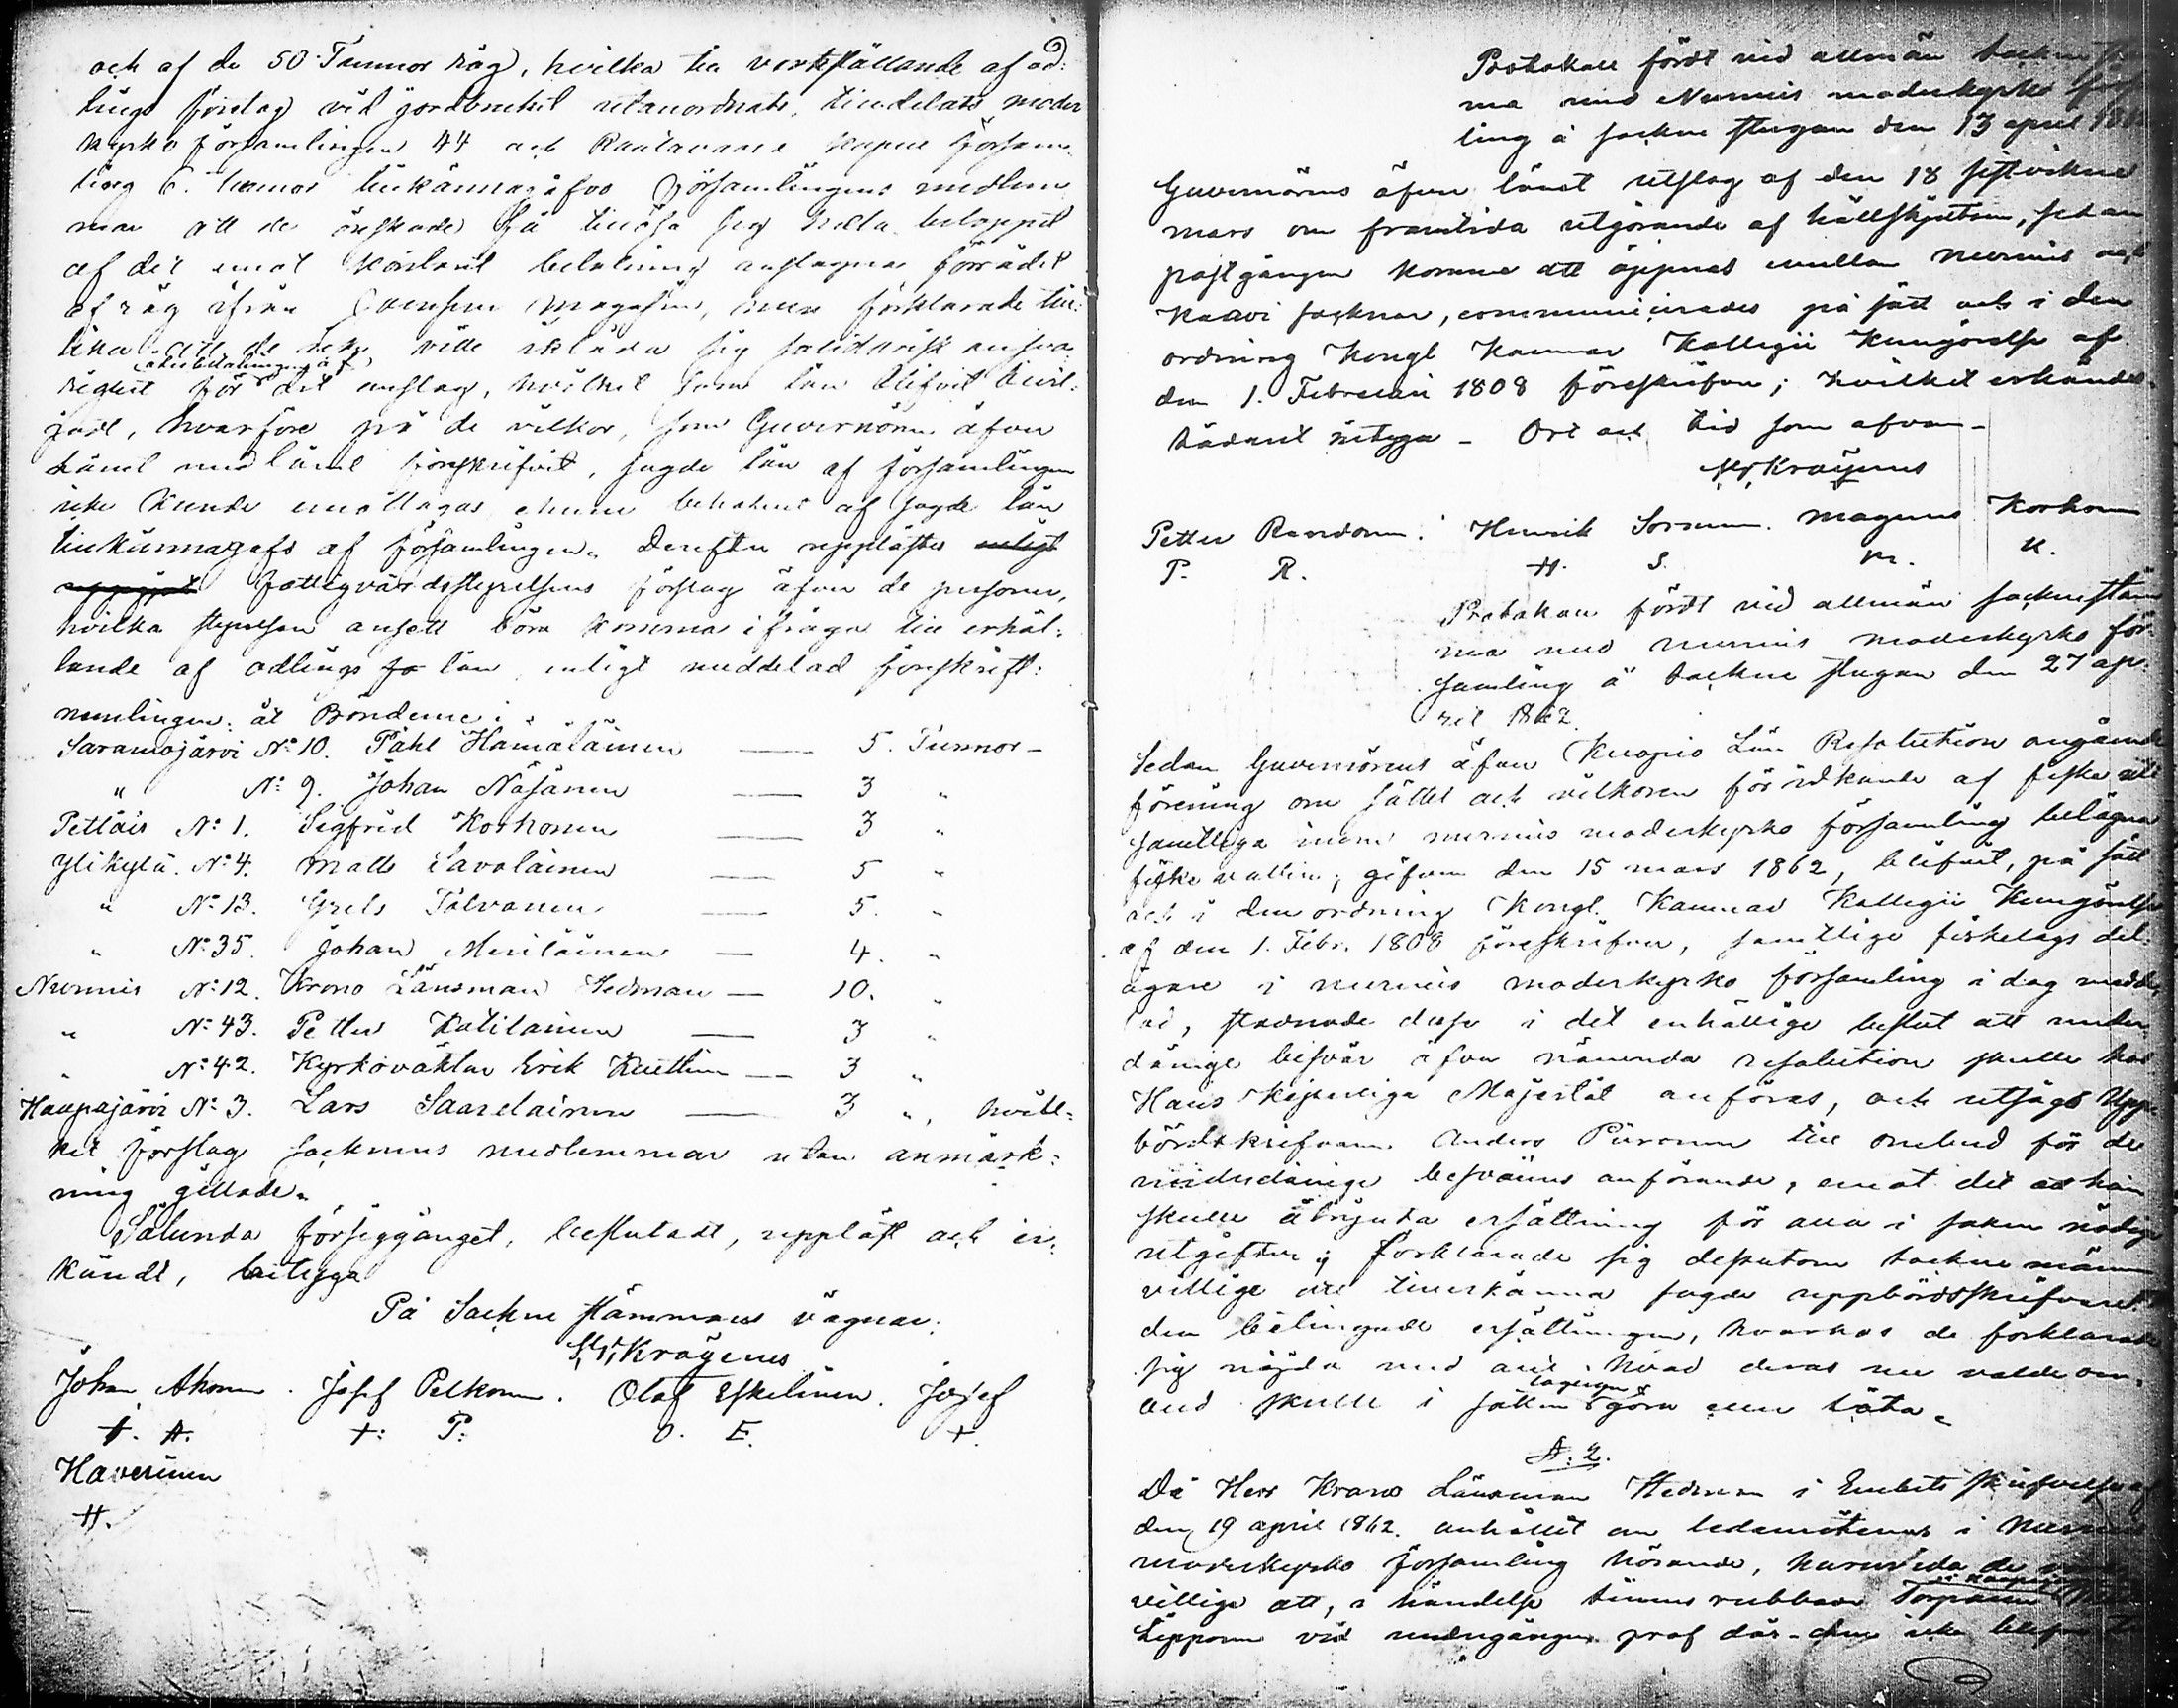 och af de 50 Tunnor råg, hvilka till verkställande af od:
lings företag vid jordbruket utanordnats, tilldelats moder
kyrko församlingen 44 och Rautavaara kapell församling
ling 6. tunnor tillkännagåfvo församlingens medlem
mar att de önskade få tillösa sig hela beloppet
af det emot kontant betalning anslagna förrådet
af råg ifrån Joensuu Magasin, men förklarade till:
lika att de icke ville ikläda sig solidarisk ansva
(återbetalningen af)
righet för det anslag, hvilket som lån blifvit bevil:
jadt, hvarföre på de vilkor, som Guvernören äfven
länet med länet föreskrifvit, sagde lån af församlingen
icke kunde emottagas, ehuru behofvet af sagde lån
tillkännagafs af församlingen. Derefter upplästes enligt
uppgjort Fattigvårdsstyrelsens förslag äfven de personer,
hvilka styrelsen ansett böra komma ifråga till erhål:
lande af odlings fo lån, enligt meddelad föreskrift:
nemligen: åt Bönderne:
Saramojärvi No 10. Påhl Hämäläinen — 5. Tunnor –
" No 9. Johan Näsänen — 3 "
Petläis No 1. Segfrid Korhonen — 3 "
Ylikylä. No 4. Matts Savolainen — 5 "
" No 13. Grels Tolvanen — 5. "
" No 35. Johan Meriläinen — 4. "
Nurmis No 12. Krono Länsman Hedman — 10. "
" No 43. Petter Katilainen — 3 "
" No 42. Kyrkoväktar Erik Kuittinen — 3 "
Haapajärvi No 3. Lars Saarelainen — 3 ", hvil:
ket förslag socknens medlemmar utan anmärk:
ning gillade.
Sålunda försiggånget, beslutadt, uppläst och er:
kändt, betyga
På Sockne stämmans vägnar:
Krogerus
Johan Ahonen. Josef Pelkonen. Olof Eskelinen. Josef
J. A. J: P: O. E. J.
Haverinen
H.
Protokoll fördt vid allmän sockne
ma med Nurmis moderkyrko för
ling å sockne stugan den 13 april
Guvernörens äfven länet utslag af den 18 sistvikne
mars om framtida utgörande af hållskjutsen, sedan
postgången komme att öppnas emellan Nurmis och
Kaavi socknar, communicerades på sätt och i den
ordning Kongl Kammar Kollegii Kungörelse af
den 1. Februarii 1808 föreskrifver; hvilket erhändet
hädanel intyga – Ort och tid som ofvan –
Krogerus
Petter Rendonen. Henrik Sormunen. Magnus Korhonen
P. R. H. S. M. K.
Protokoll fördt vid allmän sockne stäm
ma med Nurmis moderkyrko för
samling å sockne stugan den 27 ap
ril 1862.
Sedan Guvernörens äfven Kuopio Län Resolution angående
förening om sättet och vilkoren för idkande af fiske uti
samtliga inom Nurmis moderkyrko församling belägna
fiske vatten; gifven den 15 mars 1862, blifvit, på sätt
och i den ordning Kongl. Kammar Kollegii Kungörelse
af den 1. Febr. 1808 föreskrifver, samtlige fiskelags del:
ägare i Nurmis moderkyrko församling i dag medde
lad, stadnade desse i det enhällige beslut att under
dånige besvär öfver nämnda resolution skulle hos
Hans Kejserliga Majestät anföras, och utsågs Upp
bördsskrifvaren Anders Piironen till ombud för de
underdånige besvärens anförande, emot det att han
skulle åtnjuta ersättning för alla i saken nödiga
utgifter; förklarade sig dessutom sockne männen
villige att tillerkänna sagde uppbördsskrifvaren
den betingade ersättningen, hvarhos de förklarade
sig nöjda med allt, hvad deras nu valde om:
lagligen
bud skulle i saken göra eller låta.
§. 2.
Då Herr Krono Länsman Hedman i Embets skrifvelse af
den 19 april 1862. anhållit om ledamöternas i Nurmis
moderkyrko församling hörande, huruvida de
villige att, i händelse
Lipponen vid undergången prof där